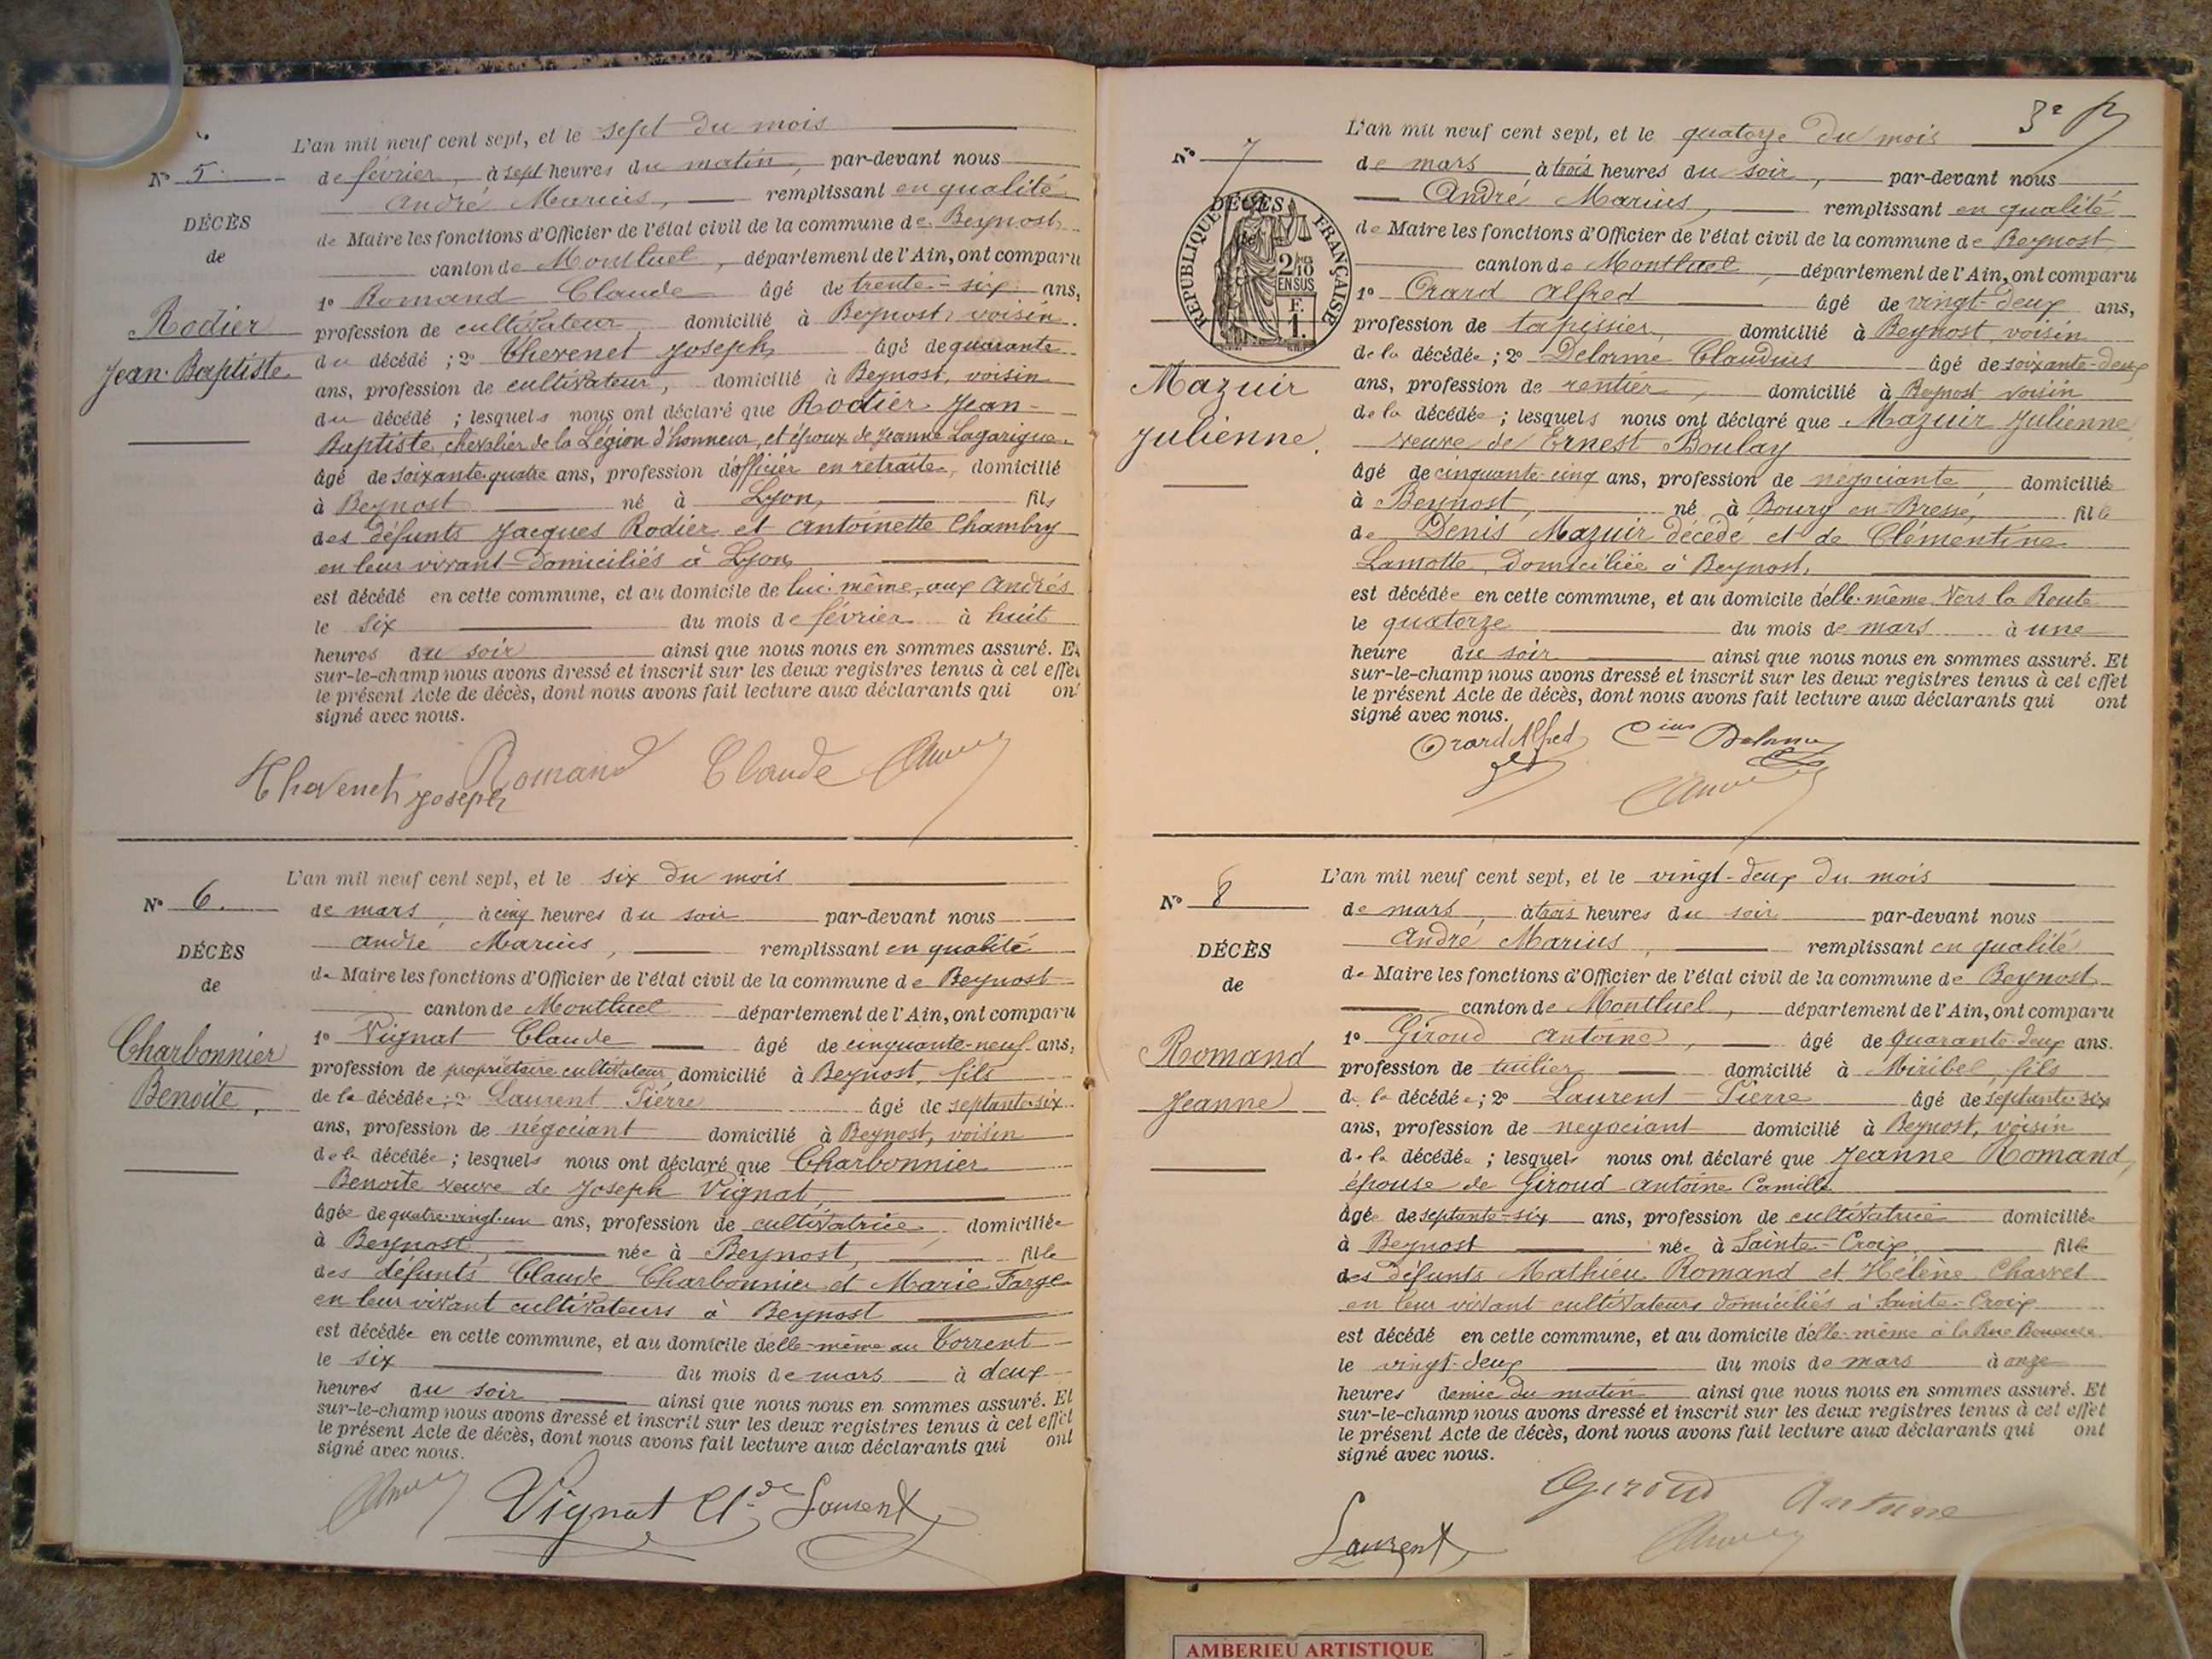 L'an mil neuf cent sept, et le sept du mois
N° 5
de février, à sept heures du matin, par-devant nous
André Marius, remplissant en qualité
DÉCÈS
de
Rodier
Jean-Baptiste
de Maire les fonctions d'Officier de l'état civil de la commune de Beynost,
canton de Montluel, département de l'Ain, ont comparu
1° Romand Claude âgé de trente-six ans,
profession de cultivateur, domicilié à Beynost, voisin
du décédé ; 2° Thevenet Joseph âgé de quarante
ans, profession de cultivateur, domicilié à Beynost, voisin
du décédé ; lesquels nous ont déclaré que Rodier Jean-
Baptiste, chevalier de la Légion d'honneur, et époux de Jeanne Lagarigue
âgé de soixante-quatre ans, profession d'officier en retraite, domicilié
à Beynost né à Lyon, fils
des défunts Jacques Rodier et Antoinette Chambry
en leur vivant domiciliés à Lyon
est décédé en cette commune, et au domicile de lui-même, aux Andrés
le six du mois de février à huit
heures du soir ainsi que nous nous en sommes assuré. Et
sur-le-champ nous avons dressé et inscrit sur les deux registres tenus à cet effet
le présent Acte de décès, dont nous avons fait lecture aux déclarants qui ont
signé avec nous.
Thevenet Joseph Romand Claude
L'an mil neuf cent sept, et le six du mois
N° 6.
de mars, à cinq heures du soir par-devant nous
André Marius, remplissant en qualité
DÉCÈS
de
Charbonnier
Benoîte,
de Maire les fonctions d'Officier de l'état civil de la commune de Beynost
canton de Montluel département de l'Ain, ont comparu
1° Vignat Claude âgé de cinquante-neuf ans,
profession de propriétaire cultivateur domicilié à Beynost, fils
de la décédée ; 2° Laurent Pierre âgé de septante-six
ans, profession de négociant domicilié à Beynost, voisin
de la décédée ; lesquels nous ont déclaré que Charbonnier
Benoîte veuve de Joseph Vignat,
âgée de quatre-vingt-un ans, profession de cultivatrice, domiciliée
à Beynost, née à Beynost, fille
des défunts Claude Charbonnier et Marie Farge
en leur vivant cultivateurs à Beynost
est décédée en cette commune, et au domicile d'elle-même au Torrent
le six du mois de mars à deux
heures du soir ainsi que nous nous en sommes assuré. Et
sur-le-champ nous avons dressé et inscrit sur les deux registres tenus à cet effet
le présent Acte de décès, dont nous avons fait lecture aux déclarants qui ont
signé avec nous.
Vignat Cl.de Laurent
3e
L'an mil neuf cent sept, et le quatorze du mois
N° 7
de mars à trois heures du soir, par-devant nous
André Marius, remplissant en qualité
DÉCÈS
RÉPUBLIQUE FRANÇAISE
2/10 EN SUS
F. 1.
Mazuir
Julienne.
de Maire les fonctions d'Officier de l'état civil de la commune de Beynost,
canton de Montluel, département de l'Ain, ont comparu
1° Orard Alfred âgé de vingt-deux ans,
profession de tapissier, domicilié à Beynost voisin
de la décédée ; 2° Delorme Claudius âgé de soixante-deux
ans, profession de rentier, domicilié à Beynost voisin
de la décédée ; lesquels nous ont déclaré que Mazuir Julienne
veuve de Ernest Boulay
âgé de cinquante-cinq ans, profession de négociante, domiciliée
à Beynost, né à Bourg en Bresse, fille
de Denis Mazuir décédé et de Clémentine
Lamotte, domiciliée à Beynost,
est décédée en cette commune, et au domicile d'elle-même Vers la Route
le quatorze du mois de mars à une
heure du soir ainsi que nous nous en sommes assuré. Et
sur-le-champ nous avons dressé et inscrit sur les deux registres tenus à cet effet
le présent Acte de décès, dont nous avons fait lecture aux déclarants qui ont
signé avec nous.
Orard Alfred Cius Delorme
L'an mil neuf cent sept, et le vingt-deux du mois
N° 8
de mars, à trois heures du soir par-devant nous
André Marius, remplissant en qualité
DÉCÈS
de
Romand
Jeanne
de Maire les fonctions d'Officier de l'état civil de la commune de Beynost,
canton de Montluel, département de l'Ain, ont comparu
1° Giroud Antoine, âgé de quarante-deux ans.
profession de tuilier domicilié à Miribel, fils
de la décédée ; 2° Laurent Pierre âgé de septante-six
ans, profession de négociant domicilié à Beynost, voisin
de la décédée ; lesquels nous ont déclaré que Jeanne Romand,
épouse de Giroud Antoine Camille
âgée de septante-six ans, profession de cultivatrice domiciliée
à Beynost née à Sainte-Croix, fille
des défunts Mathieu Romand et Hélène Charvet
en leur vivant cultivateurs domiciliés à Sainte-Croix
est décédé en cette commune, et au domicile d'elle-même à la Rue Boueuse
le vingt-deux du mois de mars à onze
heures demie du matin ainsi que nous nous en sommes assuré. Et
sur-le-champ nous avons dressé et inscrit sur les deux registres tenus à cet effet
le présent Acte de décès, dont nous avons fait lecture aux déclarants qui ont
signé avec nous.
Giroud Antoine
Laurent
AMBERIEU ARTISTIQUE